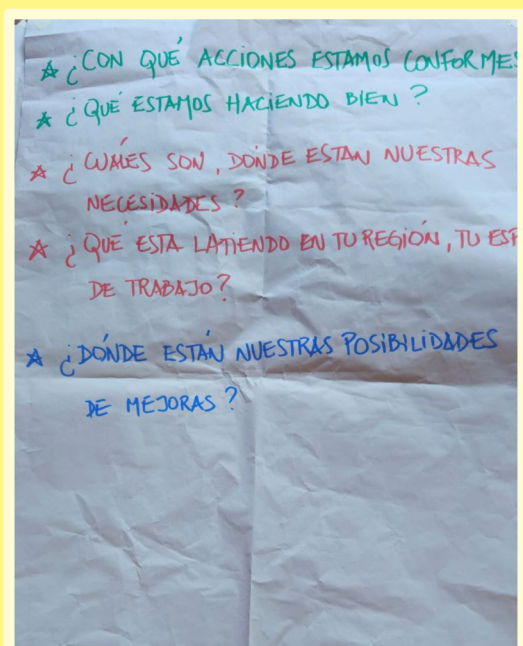 ☆ ¿CON QUÉ ACCIONES ESTAMOS CONFORMES
☆ ¿QUÉ ESTAMOS HACIENDO BIEN?
☆ ¿CUALES SON, DÓNDE ESTÁN NUESTRAS
NECESIDADES?
☆ ¿QUÉ ESTA LATIENDO EN TU REGIÓN, TU ESP
DE TRABAJO?
☆ ¿DÓNDE ESTÁN NUESTRAS POSIBILIDADES
DE MEJORAS?